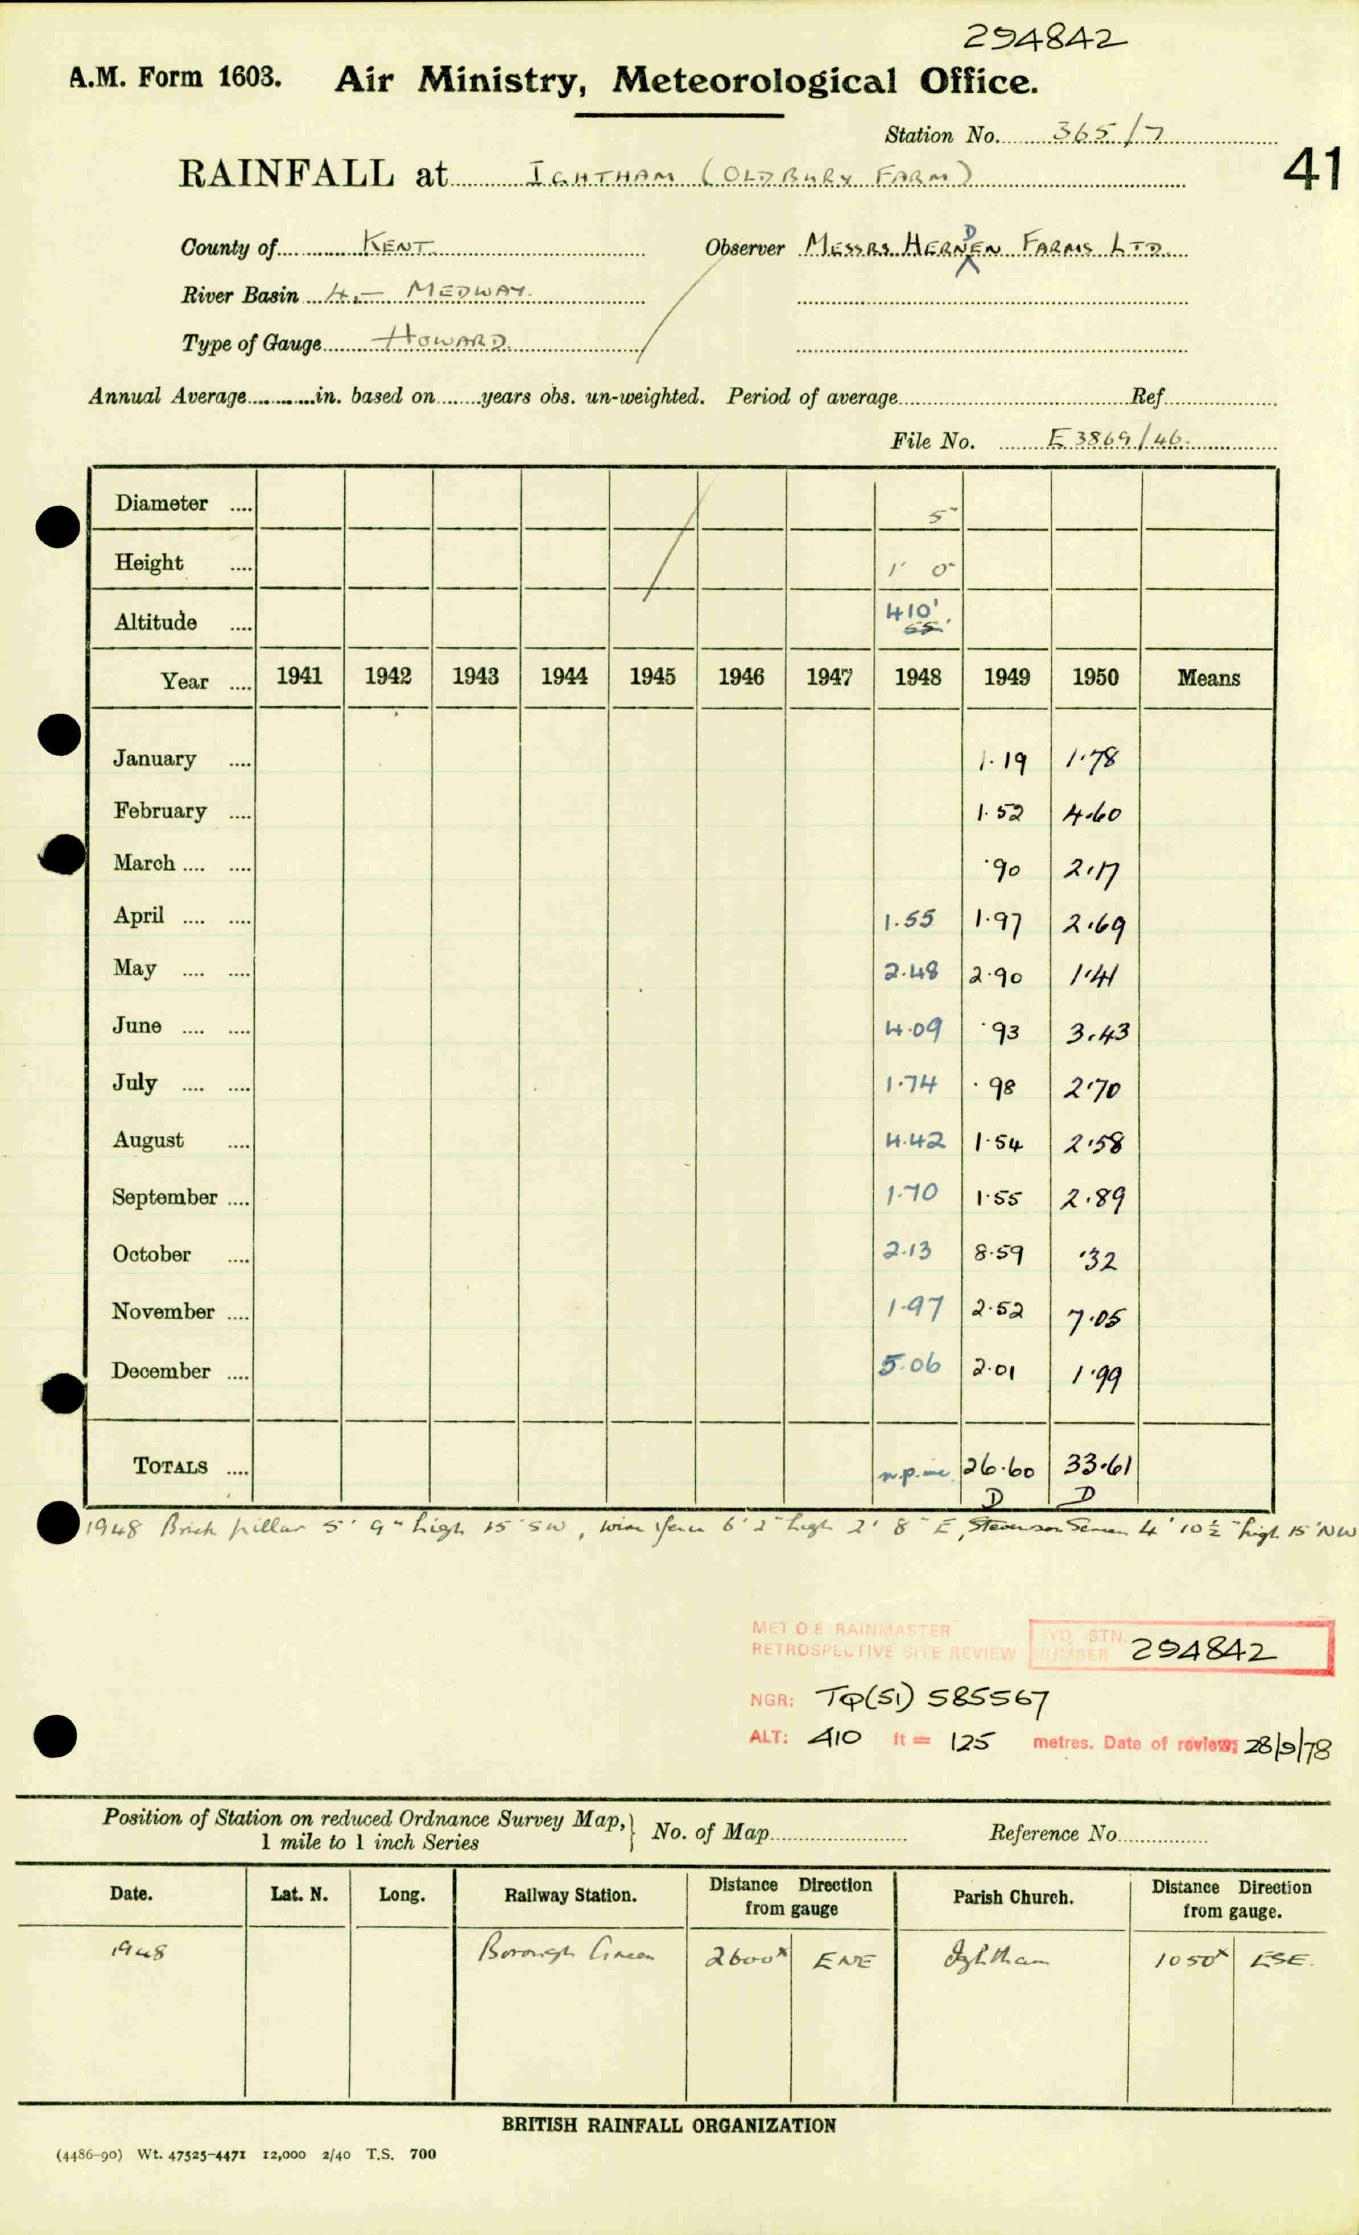 294842
A.M. Form 1603. Air Ministry, Meteorological Office.
Station No. 365/7
41
RAINFALL at IGHTHAM (OLDBURY FARM)
County of KENT Observer MESSRS. HERNDEN FARMS LTD.
River Basin 4.— MEDWAY.
Type of Gauge HOWARD.
Annual Average............in. based on.......years obs. un-weighted. Period of average............Ref............
File No. E3869/46.
Diameter .... 5"
Height .... 1' 0"
Altitude .... 410' 55'
Year .... 1941 1942 1943 1944 1945 1946 1947 1948 1949 1950 Means
January .... 1.19 1.78
February .... 1.52 4.60
March .... .... .90 2.17
April .... .... 1.55 1.97 2.69
May .... .... 2.48 2.90 1.41
June .... .... 4.09 .93 3.43
July .... .... 1.74 .98 2.70
August .... 4.42 1.54 2.58
September .... 1.70 1.55 2.89
October .... 2.13 8.59 .32
November .... 1.97 2.52 7.05
December .... 5.06 2.01 1.99
TOTALS .... n.p. inc. 26.60 33.61
D D
1948 Brick pillar 5' 9" high 15' SW, wire fence 6' 2" high 2' 8" E, Stevenson Screen 4' 10½" high 15' NW
MET.O.8 RAINMASTER
RETROSPECTIVE SITE REVIEW
HYD. STN. NUMBER 294842
NGR: TQ(51) 585567
ALT: 410 ft = 125 metres. Date of review: 28/9/78
Position of Station on reduced Ordnance Survey Map, 1 mile to 1 inch Series } No. of Map............ Reference No............
Date. Lat. N. Long. Railway Station. Distance Direction from gauge Parish Church. Distance Direction from gauge.
1948 Borough Green 2600x ENE Ightham 1050x ESE.
BRITISH RAINFALL ORGANIZATION
(4486-90) Wt. 47525-4471 12,000 2/40 T.S. 700